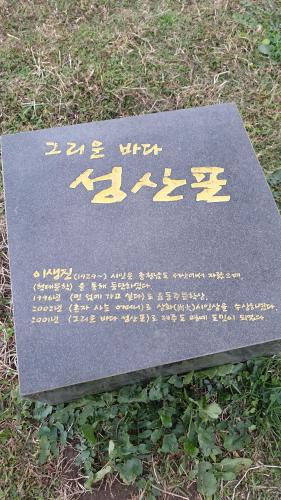 그리운 바다
성산포
이생진(1929~) 시인은 충청남도 서산에서 자랐으며,
(현대문학)을 통해 등단하였다.
1996년 (먼 섬에 가고 싶다)로 윤동주문학상,
2002년 (혼자 사는 어머니)로 상화(尙火)시인상을 수상하였다.
2001년 (그리운 바다 성산포)로 제주도 명예 도민이 되었다.